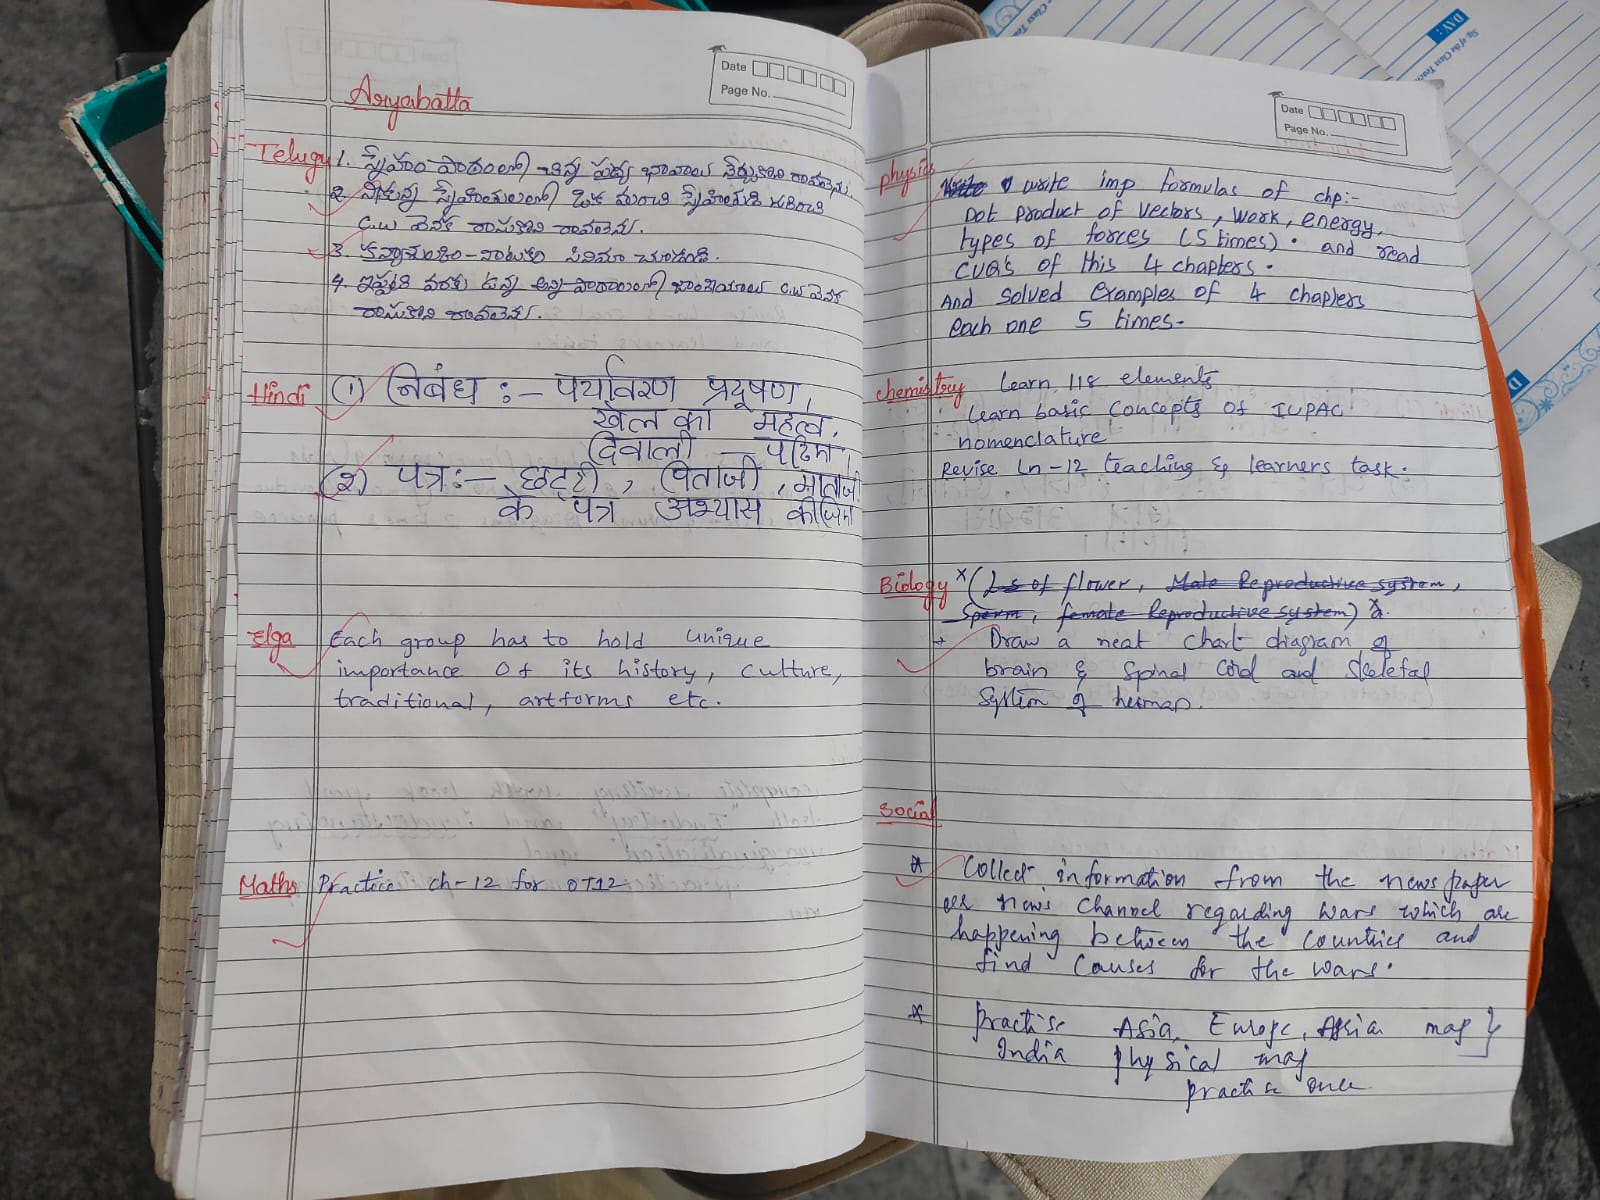 Date
Page No.
Aryabatta
Telugu 1. స్నేహం పాఠంలోని పద్య భావాలు నేర్చుకొని రావలెను.
2. నీకున్న స్నేహితులలో ఒక మంచి స్నేహితుడి గురించి
C.W వెనక రాసుకొని రావలెను.
3. కన్యాశుల్కం - నాటకం సినిమా చూడండి.
4. ఇప్పటి వరకు ఉన్న అన్ని పాఠాలలోని C.W వెనక
రాసుకొని రావలెను.
Hindi (1) निबंध :- पर्यावरण प्रदूषण,
खेल का महत्व,
दिवाली - पढिए,
(२) पत्र :- छुट्टी, पिताजी, माताजी
के पत्र अभ्यास कीजिए
Elga Each group has to hold unique
importance Of its history, culture,
traditional, artforms etc.
Maths Practice ch-12 for OT12
Date
Page No.
physics write imp formulas of chp:-
Dot product of vectors, work, energy,
types of forces (5 times). and read
CUQ's of this 4 chapters.
And solved examples of 4 chapters
each one 5 times.
chemistry Learn 118 elements
Learn basic concepts of IUPAC
nomenclature
Revise Ln-12 teaching & learners task.
Biology x (L.s of flower, Male Reproductive system,
Sperm, female Reproductive system) x.
→ Draw a neat chart diagram of
brain & spinal cord and skeletal
system of human.
Social
* Collect information from the news paper
or news channel regarding wars which are
happening between the countries and
find causes for the wars.
* practise Asia, Europe, map }
India physical map
practise once
DAY:
Sig of the Class Teacher
D